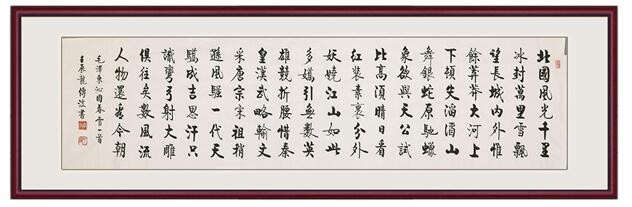 北國風光千里
冰封萬里雪飄
望長城內外惟
餘莽莽大河上
下頓失滔滔山
舞銀蛇原馳蠟
象欲與天公試
比高須晴日看
紅裝素裹分外
妖嬈江山如此
多嬌引無數英
雄競折腰惜秦
皇漢武略輸文
采唐宗宋祖稍
遜風騷一代天
驕成吉思汗只
識彎弓射大雕
俱往矣數風流
人物還看今朝
毛澤東沁園春雪一首
壬辰龍傳書